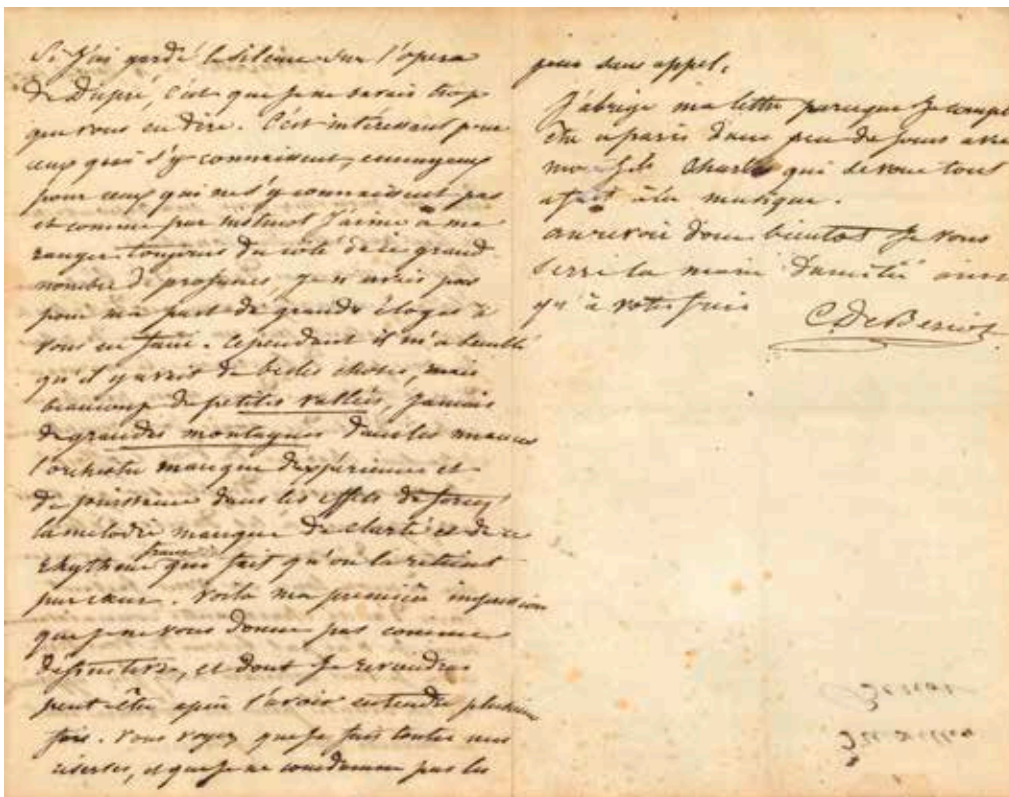 Si J'ai gardé le silence sur l'opera
de Dupré, c'est que je ne savais trop
que vous en dire. C'est intéressant pour
ceux qui s'y connaissent, ennuyeux
pour ceux qui ne s'y connaissent pas
et comme par instinct J'aime à me
ranger toujours du côté de ce grand
nombre de profanes, je n'avais pas
pour ma part de grands éloges à
vous en faire. Cependant il m'a semblé
qu'il y avait de belles choses, mais
beaucoup de petites vallées, Jamais
de grandes montagnes dans les masses
l'orchestre manque d'expérience et
de puissance dans les effets de force,
la mélodie manque de clarté et de ce
rhythme franc qui fait qu'on la retient
par cœur. Voilà ma première impression
que je ne vous donne pas comme
définitive, et dont Je reviendrai
peut être après l'avoir entendu plusieurs
fois. Vous voyez que je fais toutes mes
réserves, et que je ne condamne pas les
gens sans appel.
J'abrège ma lettre parceque Je compte
être a paris dans peu de jours avec
mon fils Charles qui se voue tout
a fait à la musique.
au revoir donc bientot Je vous
serre la main d'amitié ainsi
qu'à votre
C. De Beriot